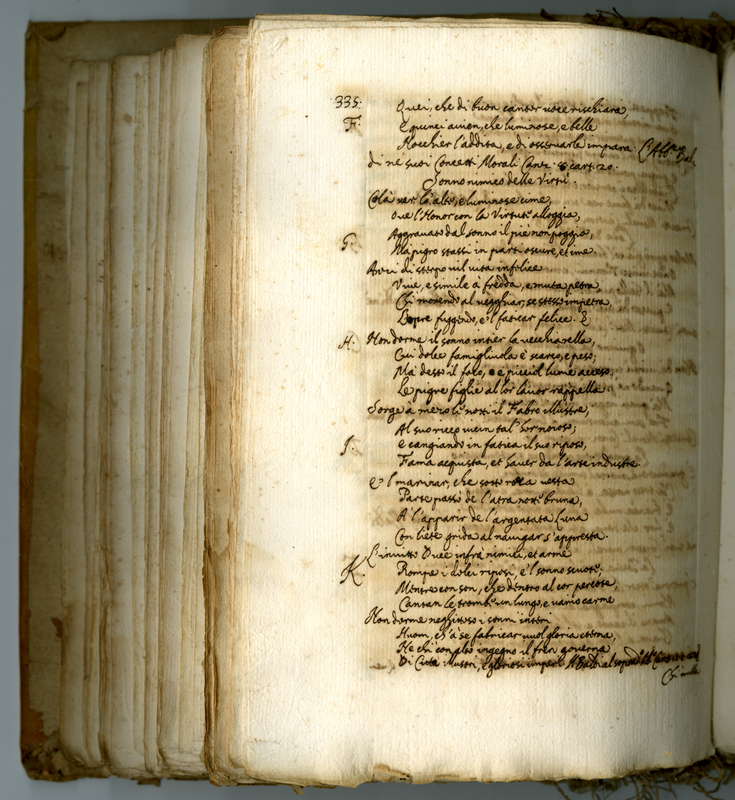 335. Quei, che di buon cantor voce rischiara,
F. E quinci avien, che luminose, e belle
Nocchier l'addita, e di osservarle impara. L'Abb.
di ne suoi Concetti Morali Cant. 8 cart. 20.
Sonno nimico delle Virtù.
Colà ver l'alte, e luminose cime,
ove l'Honor con la Virtute alloggia,
Aggravato dal sonno il piè non poggia,
G. Ma pigro stassi in parti oscure, et ime.
di sterpo vil vita infelice
Vive, e simile a fredda, e muta petra,
Chi morendo al vegghiar, se stesso impetra,
L'opre fuggendo, e'l faticar felice.
H. Non dorme il sonno intier la vecchiarella,
Cui dolce famigliuola è scarso, e peso;
Ma desto il foco, e picciol lume acceso,
Le pigre figlie al lor lavor rappella.
Sorge a mezo la notte il Fabro illustre,
Al suo ricco vicin tal'hor noioso;
I. e cangiando in fatica il suo riposo,
Fama acquista, et haver da l'arte industre.
E'l marinar, che sotto rota vesta
Parte passò de l'atra notte bruna,
A l'apparir de l'argentata Luna
Con liete grida al navigar s'appresta.
L'invitto Duce infra nimici, et arme
K. Rompe i dolci riposi, e'l sonno scuote;
Mentre con son, che dentro al cor percote,
Cantan le trombe un lungo, e vario carme
Non dorme neghittoso i sonni interi
Huom, ch'a se fabricar vuol gloria eterna,
Ne chi con alto ingegno il fren governa
Di Città illustri, e gloriosi imperi.